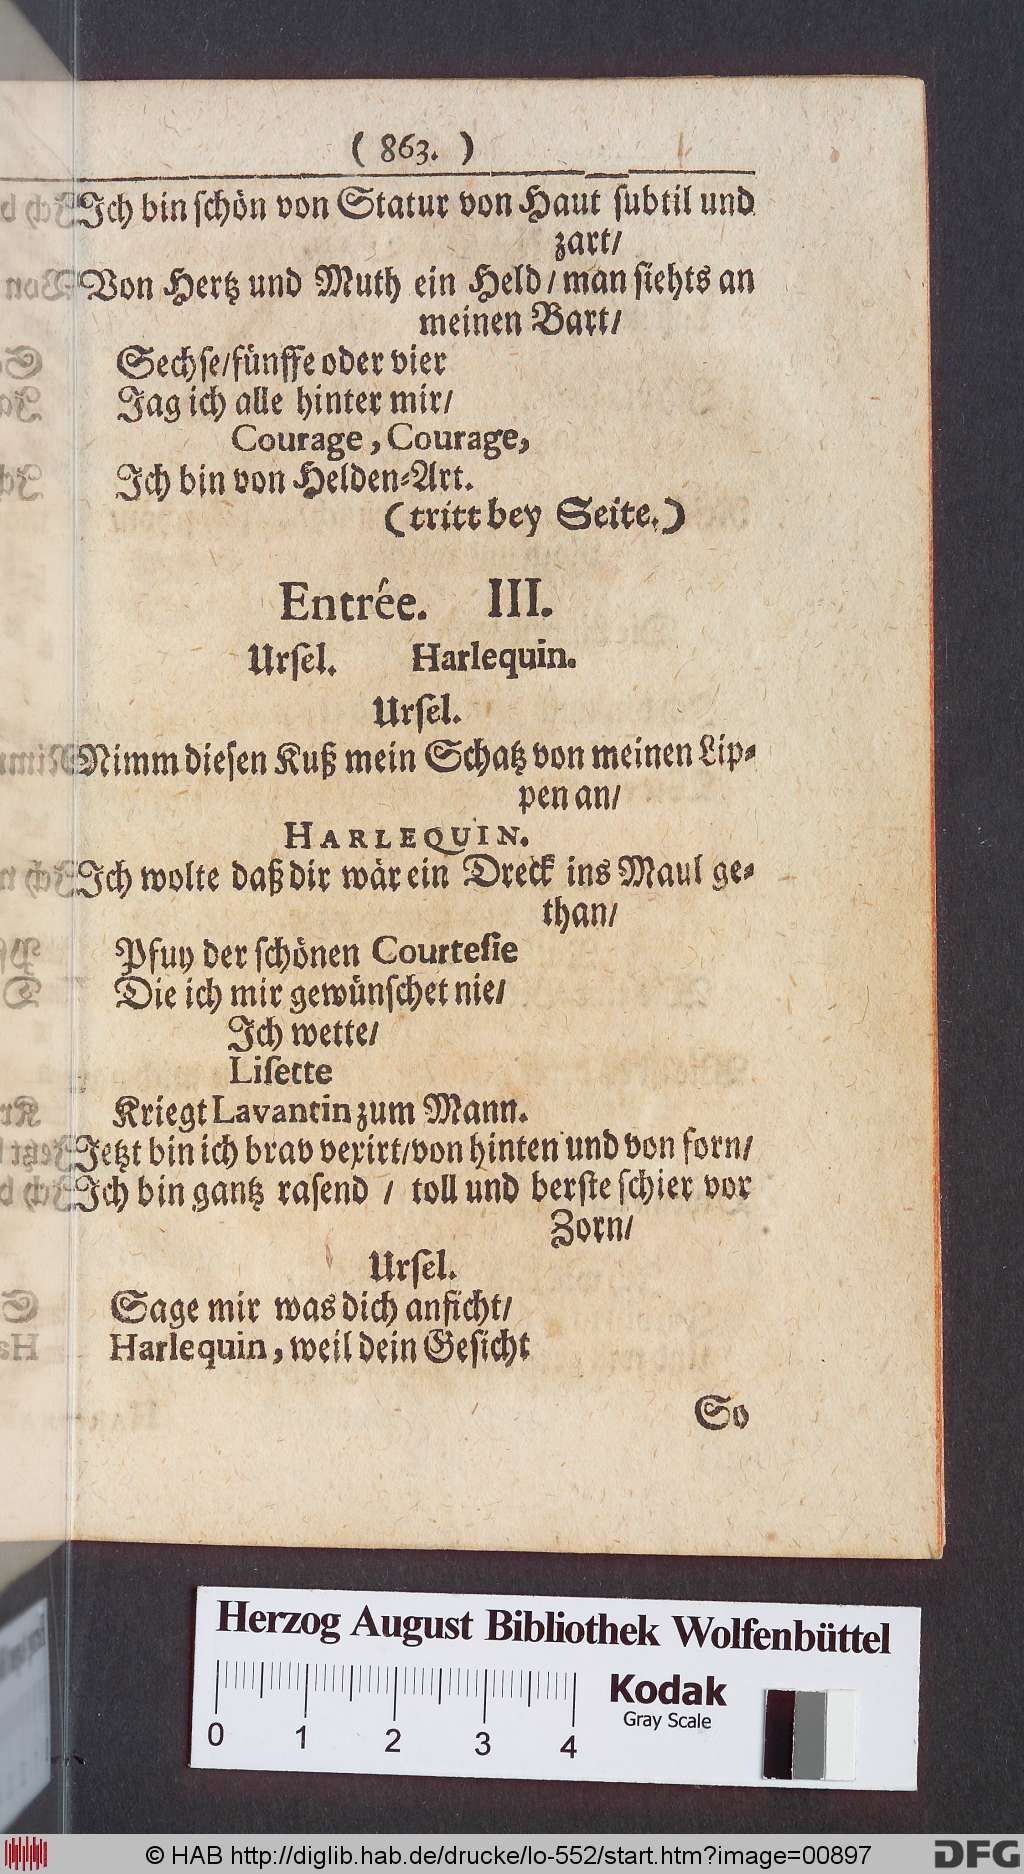 ( 863. )
Ich bin ſchön von Statur von Haut ſubtil und
zart/
Von Hertz und Muth ein Held/ man ſiehts an
meinen Bart/
Sechſe/ fünffe oder vier
Jag ich alle hinter mir/
Courage, Courage,
Ich bin von Helden-Art.
(tritt bey Seite.)
Entrée. III.
Urſel. Harlequin.
Urſel.
Nimm dieſen Kuß mein Schatz von meinen Lip-
pen an/
HARLEQUIN.
Ich wolte daß dir wär ein Dreck ins Maul ge-
than/
Pfuy der ſchönen Courteſie
Die ich mir gewünſchet nie/
Ich wette/
Liſette
Kriegt Lavantin zum Mann.
Jetzt bin ich brav vexirt/ von hinten und von forn/
Ich bin gantz raſend / toll und berſte ſchier vor
Zorn/
Urſel.
Sage mir was dich anficht/
Harlequin, weil dein Geſicht
So
Herzog August Bibliothek Wolfenbüttel
0 1 2 3 4
Kodak
Gray Scale
© HAB http://diglib.hab.de/drucke/lo-552/start.htm?image=00897
DFG